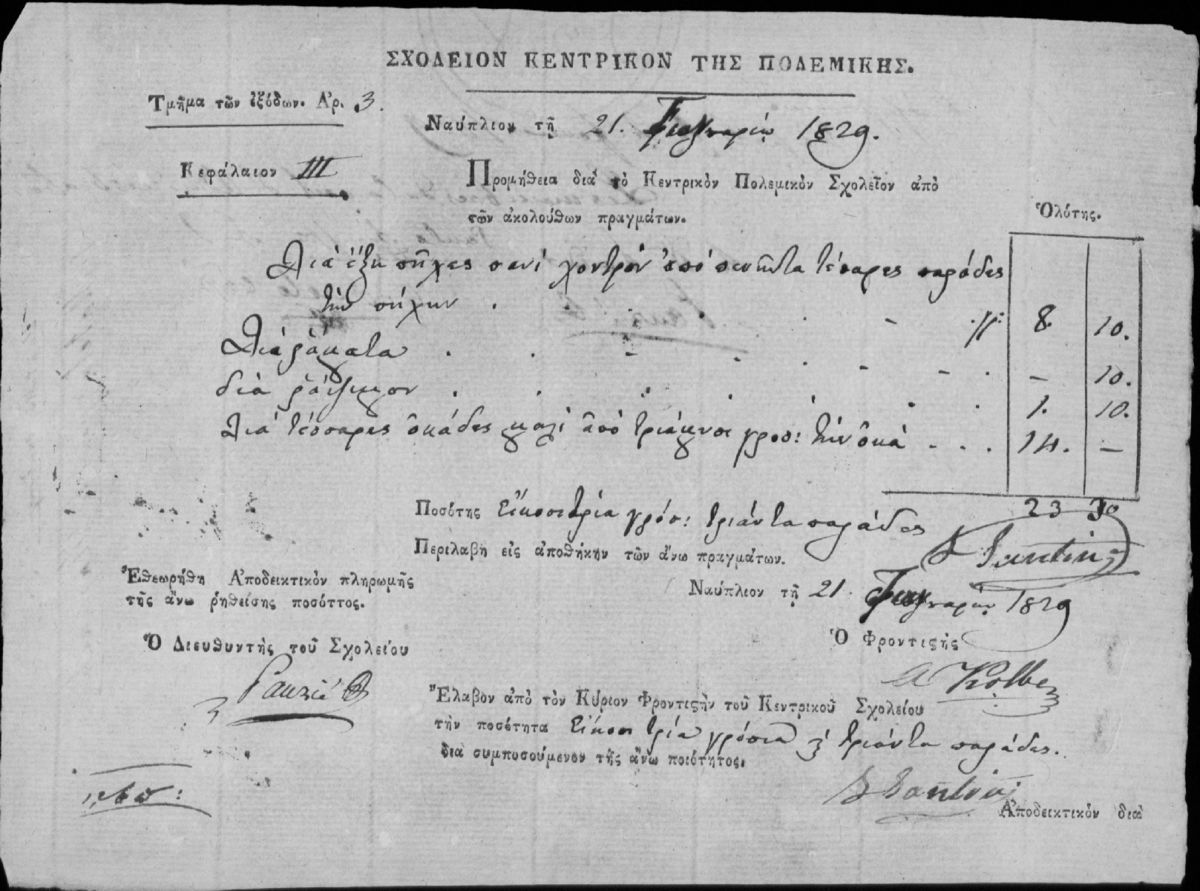 ΣΧΟΛΕΙΟΝ ΚΕΝΤΡΙΚΟΝ ΤΗΣ ΠΟΛΕΜΙΚΗΣ.
Τμῆμα τῶν ἐξόδων. Ἀρ. 3.
Ναύπλιον τῇ 21. 1829.
Κεφάλαιον III
Προμήθεια διὰ τὸ Κεντρικὸν Πολεμικὸν Σχολεῖον ἀπὸ
τῶν ἀκολούθων πραγμάτων.
Ὁλότης.
Διὰ ἕξη πήχες πανὶ χοντρὸν ἀπὸ πενῆντα τέσαρες παράδες
τὴν πήχην 8. 10.
Διὰ – 10.
διὰ 1. 10.
Διὰ τέσσαρες ὀκάδες ἀπὸ γροσ: τὴν ὀκὰ 14. –
23 30
Ποσότης εἴκοσι τρία γρόσ: τριάντα παράδες
Περιλαβὴ εἰς ἀποθήκην τῶν ἄνω πραγμάτων.
Ἐθεωρήθη Ἀποδεικτικὸν πληρωμῆς
τῆς ἄνω ῥηθείσης ποσόττος.
Ναύπλιον τῇ 21. 1829
Ὁ Διευθυντὴς τοῦ Σχολείου
Ὁ Φροντιςὴς
Ἔλαβον ἀπὸ τὸν Κύριον Φροντιςὴν τοῦ Κεντρικοῦ Σχολείου
τὴν ποσότητα εἴκοσι τρία γρόσια τριάντα παράδες.
διὰ συμποσούμενον τῆς ἄνω ποιότητος.
Ἀποδεικτικὸν διὰ